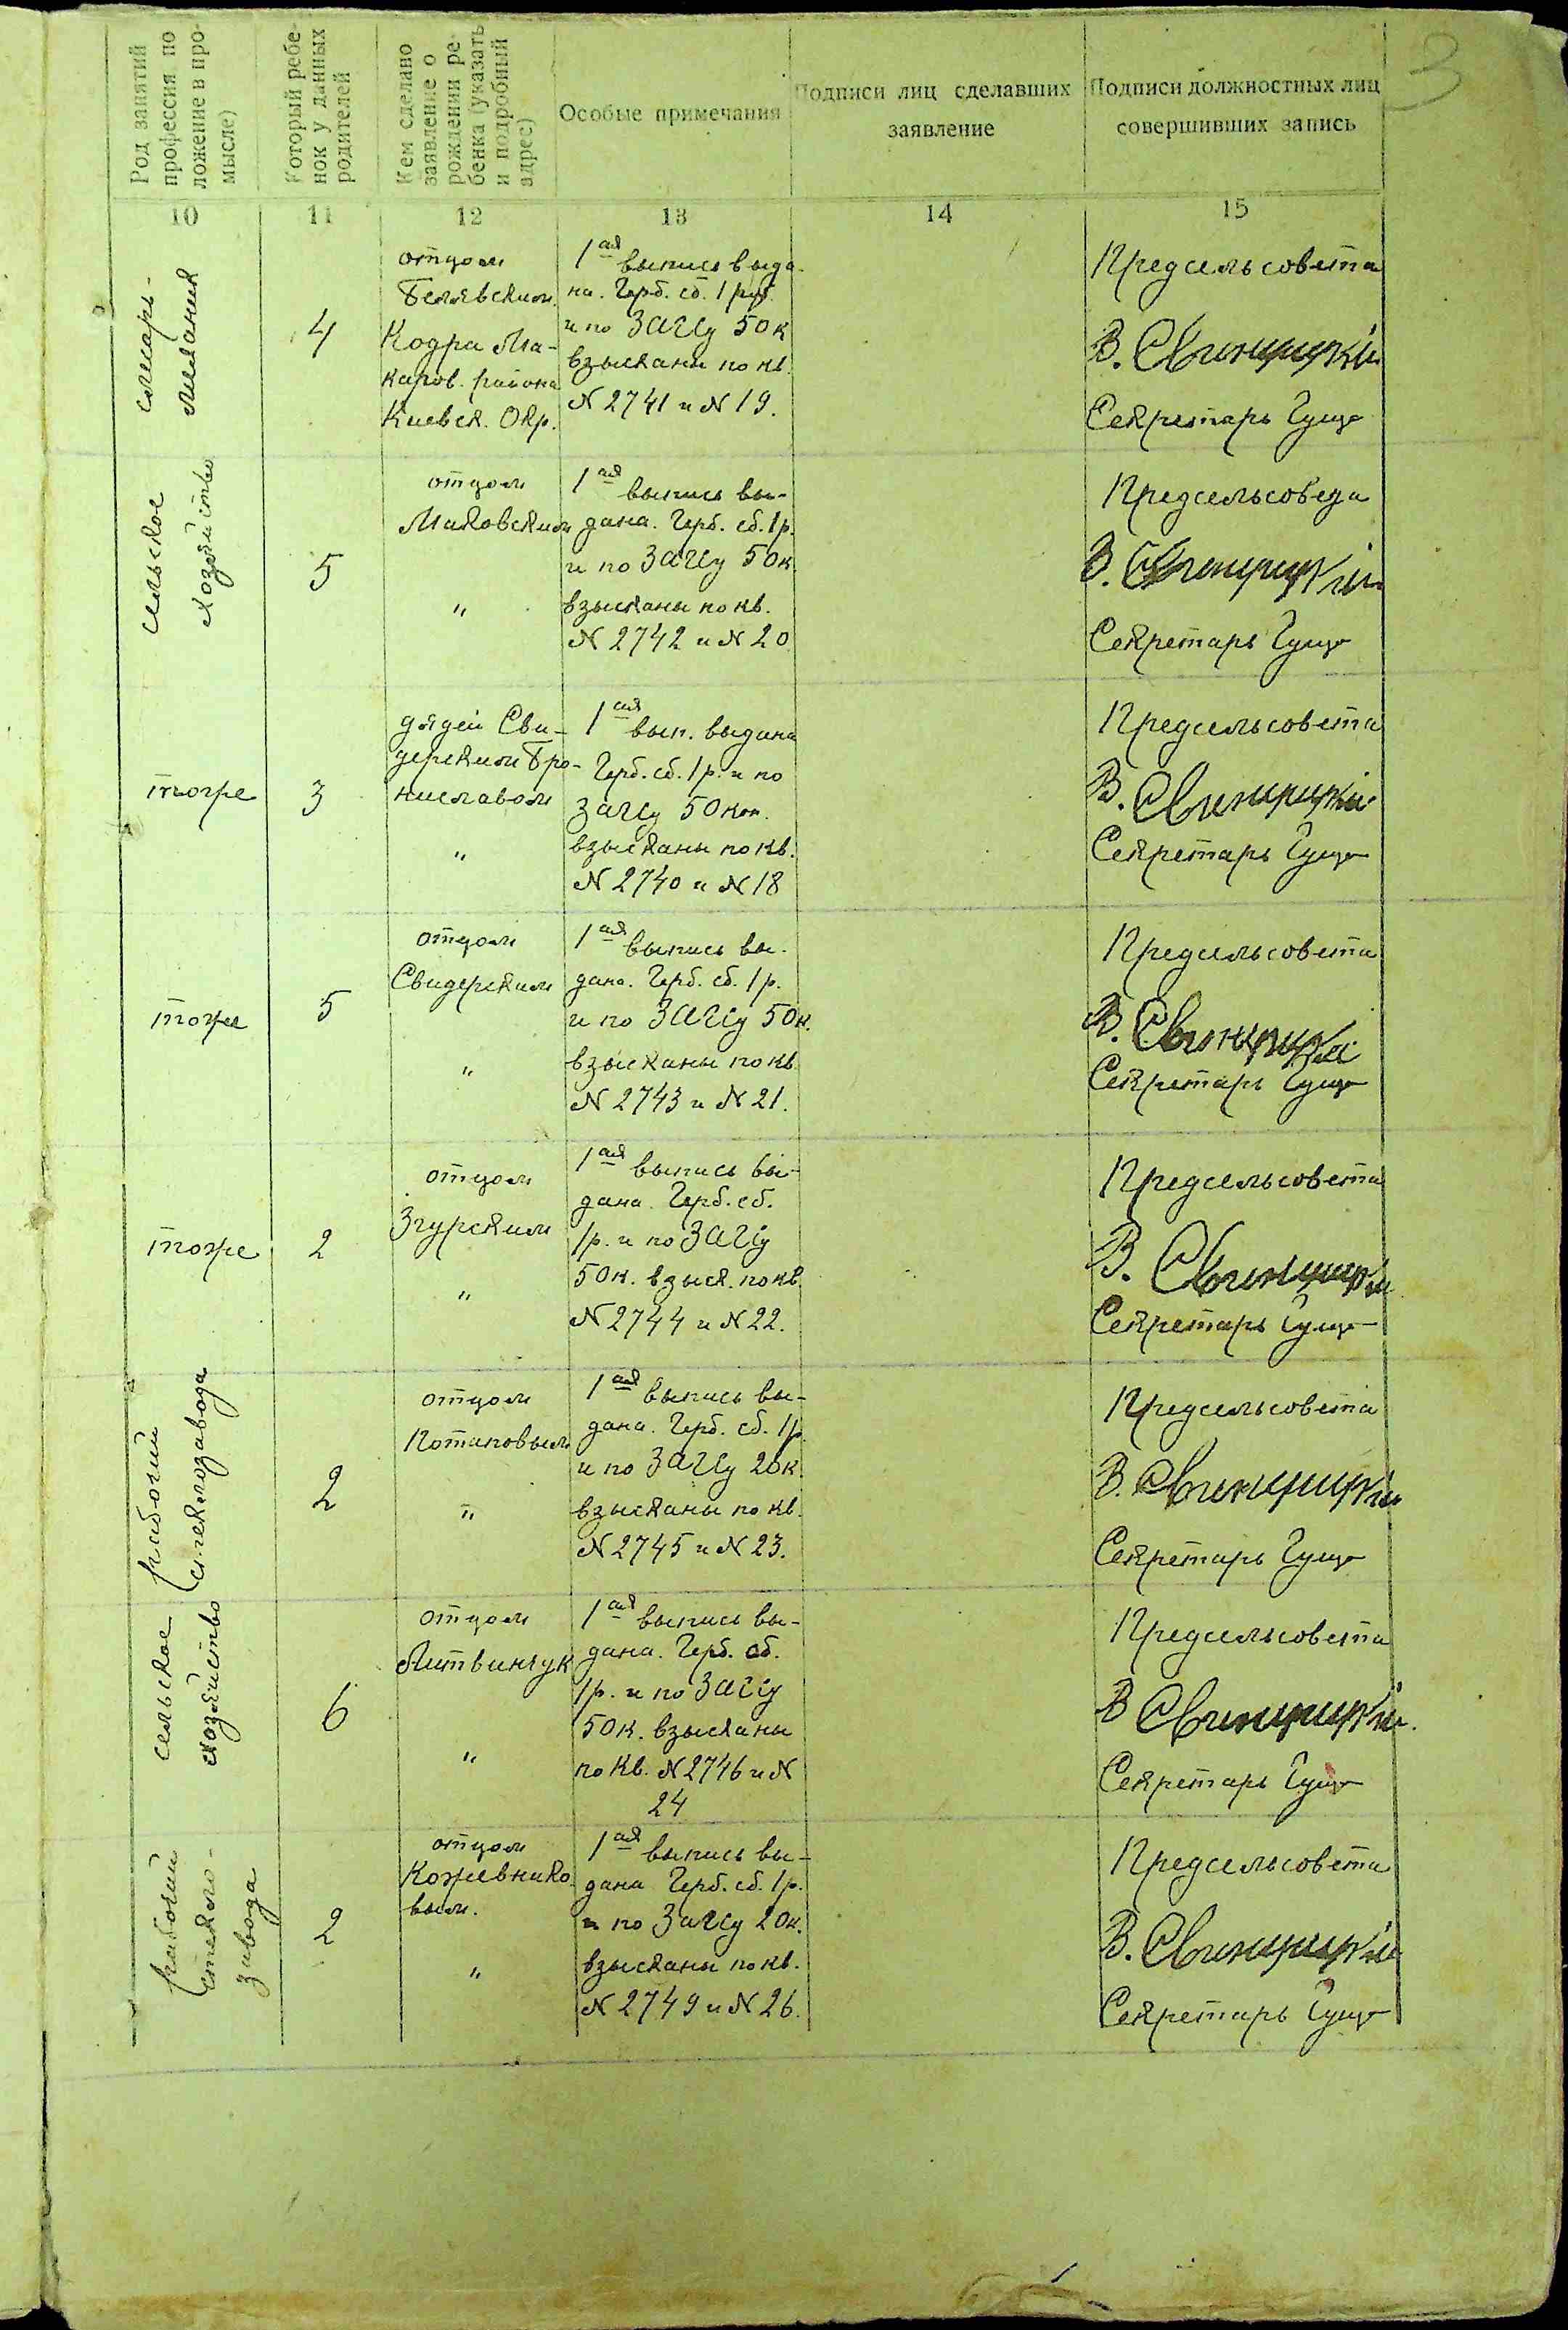 3
Род занятий
профессия по
ложение в про-
мысле)
Который ребе-
нок у данных
родителей
Кем сделано
заявление о
рождении ре-
бенка (указать
и подробный
адрес)
Особые примечания
Подписи лиц сделавших
заявление
Подписи должностных лиц
совершивших запись
10 11 12 13 14 15
слюсарь-
механик
4
отцом
Белявским
Кодра Ма-
каров. района
Киевск. Окр.
1ая выпись выда-
на. Герб. сб. 1 руб.
и по ЗАГСу 50к
взысканы по кв.
N 2741 и N 19.
Предсельсовета
В. Свинцицкий
Секретарь
сельское
хозяйство
5
отцом
Маковским
"
1ая выпись вы-
дана. Герб. сб. 1р.
и по ЗАГСу 50к.
взысканы по кв.
N 2742 и N 20
Предсельсовета
В. Свинцицкий
Секретарь
тоже
3
дядей Сви-
дерским Бро-
ниславом
"
1ая вып. выдана
Герб. сб. 1р. и по
ЗАГСу 50коп.
взысканы по кв.
N 2740 и N 18
Предсельсовета
В. Свинцицкий
Секретарь
тоже
5
отцом
Свидерским
"
1ая выпись вы-
дана. Герб. сб. 1р.
и по ЗАГСу 50к.
взысканы по кв
N 2743 и N 21.
Предсельсовета
В. Свинцицкий
Секретарь
тоже
2
отцом
Згурским
"
1ая выпись вы-
дана. Герб. сб.
1р. и по ЗАГСу
50к. взыск. по кв.
N 2744 и N 22.
Предсельсовета
В. Свинцицкий
Секретарь
рабочий
стеклозавода
2
отцом
Потаповым
"
1ая выпись вы-
дана. Герб. сб. 1р.
и по ЗАГСу 20к.
взысканы по кв.
N 2745 и N 23.
Предсельсовета
В. Свинцицкий
Секретарь
сельское
хозяйство
6
отцом
Литвинчук
"
1ая выпись вы-
дана. Герб. сб.
1р. и по ЗАГСу
50к. взысканы
по кв. N 2746 и N
24
Предсельсовета
В Свинцицкий
Секретарь
рабочий
стекло-
завода
2
отцом
Кожевнико-
вым.
"
1ая выпись вы-
дана Герб. сб. 1р.
и по ЗАГСу 20к.
взысканы по кв.
N 2749 и N 26.
Предсельсовета
В. Свинцицкий
Секретарь